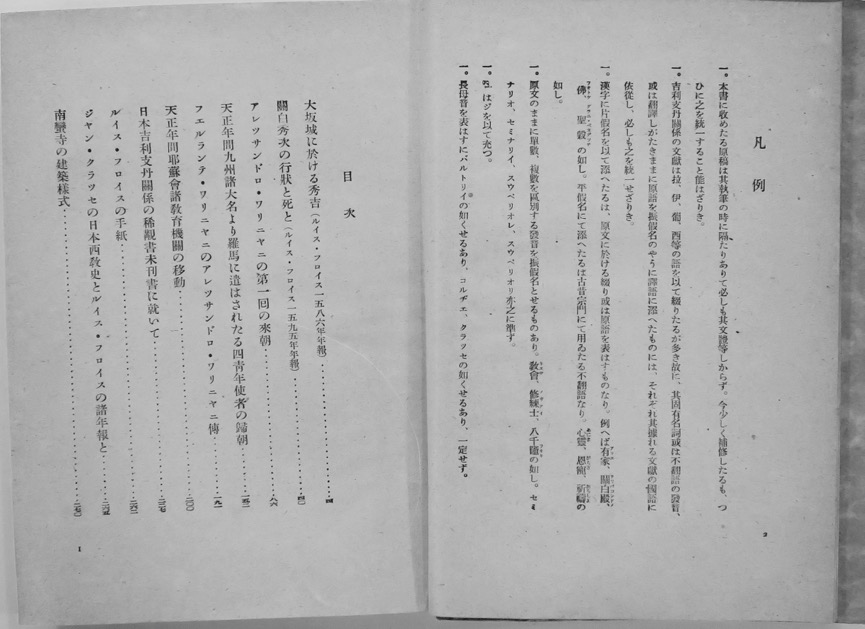 凡例
一。本書に收めたる原稿は其執筆の時に隔たりありて必しも其文體等しからず。今少しく補修したるも、つ
ひに之を統一すること能はざりき。
一。吉利支丹關係の文獻は拉、伊、葡、西等の語を以て綴りたるが多き故に、其固有名詞或は不翻語の發音、
或は翻譯しがたきままに原語を振假名のやうに譯語に添へたものには、それぞれ其據れる文獻の國語に
依從し、必しも之を統一せざりき。
一。漢字に片假名を以て添へたるは、原文に於ける綴り或は原語を表はすものなり。例へば有家、關白殿、
佛、聖殿の如し。平假名にて添へたるは古昔宗門にて用ゐたる不翻語なり。心靈、恩寵、祈禱の
如し。
一。原文のままに單數、複數を區別する發音を振假名とせるものあり。教會、修煉士、八千疊の如し。セミ
ナリオ、セミナリイ、スウペリオレ、スウペリオリ亦之に準ず。
一。はジを以て充つ。
一。長母音を表はすにバルトリイの如くせるあり、コルヂエ、クラッセの如くせるあり、一定せず。
2
目次
大坂城に於ける秀吉（ルイス・フロイス一五八六年年報）
關白秀次の行狀と死と（ルイス・フロイス一五九五年年報）
アレッサンドロ・ワリニャニの第一回の來朝 八六
天正年間九州諸大名より羅馬に遣はされたる四青年使者の歸朝
フェルランテ・ワリニャニのアレッサンドロ・ワリニャニ傳 一九一
天正年間耶蘇會諸教育機關の移動
日本吉利支丹關係の稀覯書未刊書に就いて
ルイス・フロイスの手紙
ジャン・クラッセの日本西教史とルイス・フロイスの諸年報と
南蠻寺の建築樣式
1